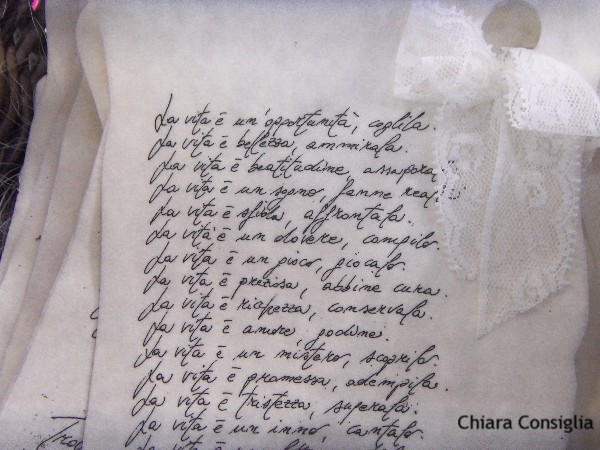 La vita è un'opportunità, coglila.
La vita è bellezza, ammirala.
La vita è beatitudine, assapora
La vita è un sogno, fanne real
La vita è sfida, affrontala.
La vita è un dovere, compilo.
La vita è un gioco, giocalo.
La vita è preziosa, abbine cura.
La vita è ricchezza, conservala.
La vita è amore, godine.
La vita è un mistero, scoprilo.
La vita è promessa, adempila.
La vita è tristezza, superala.
La vita è un inno, cantalo.
La vita è
Chiara Consiglia